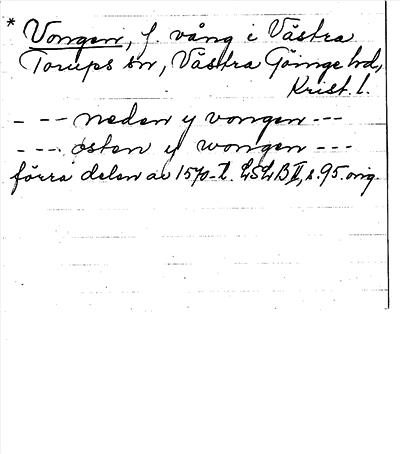 * Vongen, f. vång i Västra
Torups sn, Västra Göinge hd,
Krist. l.
- -- neden y vongen ---
- --- østen y wongen ---
förra delen av 1570-t. LSLB II, s. 95. orig.